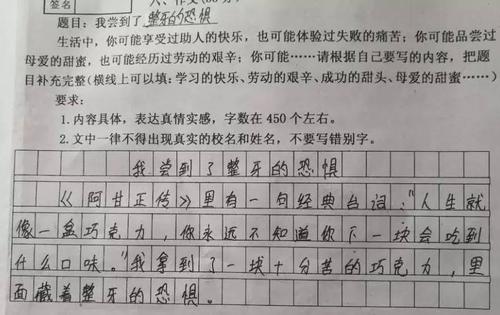 签名
六、作文
题目：我尝到了整牙的恐惧
生活中，你可能享受过助人的快乐，也可能体验过失败的痛苦；你可能品尝过
母爱的甜蜜，也可能经历过劳动的艰辛；你可能……请根据自己要写的内容，把题
目补充完整（横线上可以填：学习的快乐、劳动的艰辛、成功的甜头、母爱的甜蜜……）
要求：
1.内容具体，表达真情实感，字数在450个左右。
2.文中一律不得出现真实的校名和姓名，不要写错别字。
我尝到了整牙的恐惧
《阿甘正传》里有一句经典台词：“人生就
像一盒巧克力，你永远不知道你下一块会吃到
什么口味。”我拿到了一块十分苦的巧克力，里
面藏着整牙的恐惧。